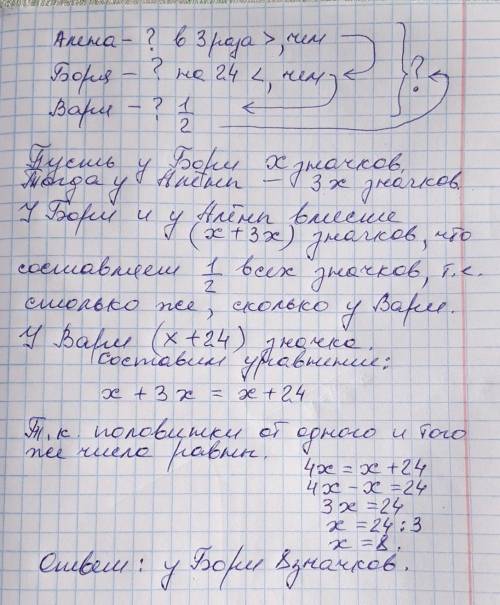 Алена – ? в 3 раза >, чем
Боря – ? на 24 <, чем
Варя – ? 1/2
?
Пусть у Бори x значков.
Тогда у Алёны – 3x значков.
У Бори и у Алёны вместе
(x + 3x) значков, что
составляет 1/2 всех значков, т.е.
столько же, сколько у Вари.
У Вари (x + 24) значка.
Составим уравнение:
x + 3x = x + 24
Т.к. половинки от одного и того
же числа равны.
4x = x + 24
4x – x = 24
3x = 24
x = 24 : 3
x = 8.
Ответ: у Бори 8 значков.